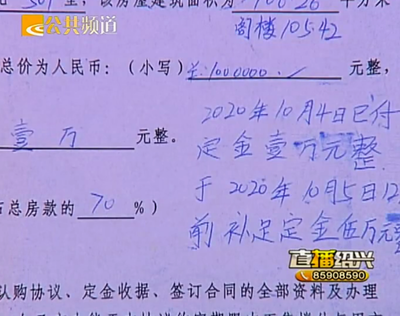 公共频道
501室，该房屋建筑面积为 100.26 平方米
阁楼105.42
总价为人民币：（小写） 1000000. 元整，
壹万 元整。
2020年10月4日已付
定金壹万元整
占总房款的 70 %）
于2020年10月5日12
前补足定金伍万元整
直播绍兴
85908590
认购协议、定金收据、签订合同的全部资料及办理